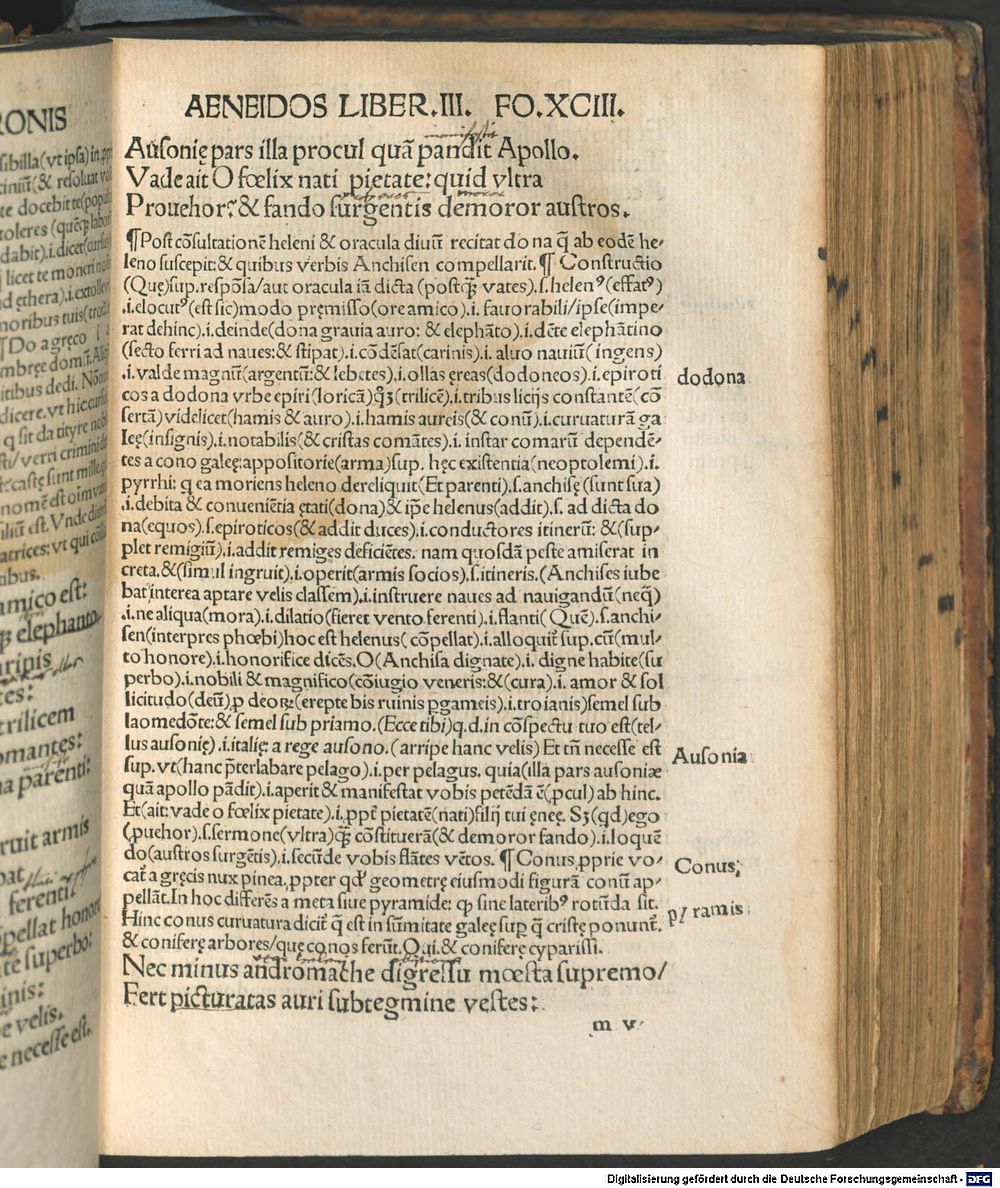 AENEIDOS LIBER.III. FO.XCIII.
Ausonię pars illa procul quã pandit Apollo.
Vade ait O fœlix nati pietate: quid vltra
Prouehor? & fando surgentis demoror austros.
¶Post cõsultationẽ heleni & oracula diuũ recitat dona q̃ ab eodẽ he/
leno suscepit: & quibus verbis Anchisen compellarit. ¶ Constructio
(Quę) sup. respõsa/aut oracula iã dicta (postq̃ vates).s.helenꝰ(effatꝰ)
.i.elocutꝰ(est sic)modo pręmisso(ore amico).i. fauorabili/ipse(impe/
rat dehinc).i.deinde(dona grauia auro: & elephãto).i.dẽte elephãtino
(secto ferri ad naues: & stipat).i.cõdẽsat(carinis).i. aluo nauiũ(ingens)
.i.valde magnũ(argentũ: & lebetes).i.ollas ęreas(dodoneos).i.epiroti
dodona
cos a dodona vrbe epiri(loricã)q̃ꝫ(trilicẽ).i.tribus licijs constantẽ(cõ
sertã)videlicet(hamis & auro).i.hamis aureis(& conũ).i.curuaturã ga
leę(insignis).i.notabilis(& cristas comãtes).i. instar comarũ dependẽ/
tes a cono galeę: appositorie(arma)sup. hęc existentia(neoptolemi).i.
pyrrhi: q ea moriens heleno dereliquit(Et parenti).s.anchisę(sunt sua)
.i.debita & conueniẽtia ętati(dona) & ip̃e helenus(addit).s. ad dicta do
na(equos).s.epiroticos(& addit duces).i.conductores itinerũ: &(sup/
plet remigiũ).i.addit remiges deficiẽtes. nam quosdã peste amiserat in
creta. &(simul ingruit).i.operit(armis socios).s.itineris.(Anchises iube
bat interea aptare velis classem).i.instruere naues ad nauigandũ(neq̃)
.i.ne aliqua(mora).i.dilatio(fieret vento ferenti).i.flanti( Quẽ).s.anchi/
sen(interpres phœbi)hoc est helenus( cõpellat).i.alloquit᷑ sup. cũ(mul/
to honore).i.honorifice dicẽs. O(Anchisa dignate).i. digne habite(su
perbo).i.nobili & magnifico(cõiugio veneris: &(cura).i. amor & sol
licitudo(deũ).p deoꝝ(erepte bis ruinis ꝑgameis).i.troianis)semel sub
laomedõte: & semel sub priamo.(Ecce tibi)q.d.in cõspectu tuo est(tel/
lus ausonię).i.italię a rege ausono.(arripe hanc velis) Et tñ necesse est
Ausonia
sup. vt(hanc p̃terlabare pelago).i.per pelagus. quia(illa pars ausoniæ
quã apollo pãdit).i.aperit & manifestat vobis petẽda ẽ(,pcul) ab hinc.
Et(ait: vade o fœlix pietate).i.ppt᷑ pietatẽ(nati)filij tui ęneę. Sꝫ(qd)ego
(,puehor).s.sermone(vltra)q̃ cõstituerã(& demoror fando).i.loquẽ
do(austros surgẽtis).i.secũde vobis flãtes vẽtos. ¶ Conus ,pprie vo/
Conus,
cat᷑ a gręcis nux pinea, ppter qd᷑ geometrę eiusmodi figurã conũ ap/
pellãt. In hoc differẽs a meta siue pyramide: ꝙ sine lateribꝰ rotũda sit.
pyramis
Hinc conus curuatura dicit᷑ q̃ est in sũmitate galeę sup q̃ cristę ponunt᷑.
& coniferę arbores/quę conos ferũt. Oui. & coniferę cyparissi.
Nec minus andromache digressu mœsta supremo/
Fert picturatas auri subtegmine vestes:
m v
Digitalisierung gefördert durch die Deutsche Forschungsgemeinschaft - DFG